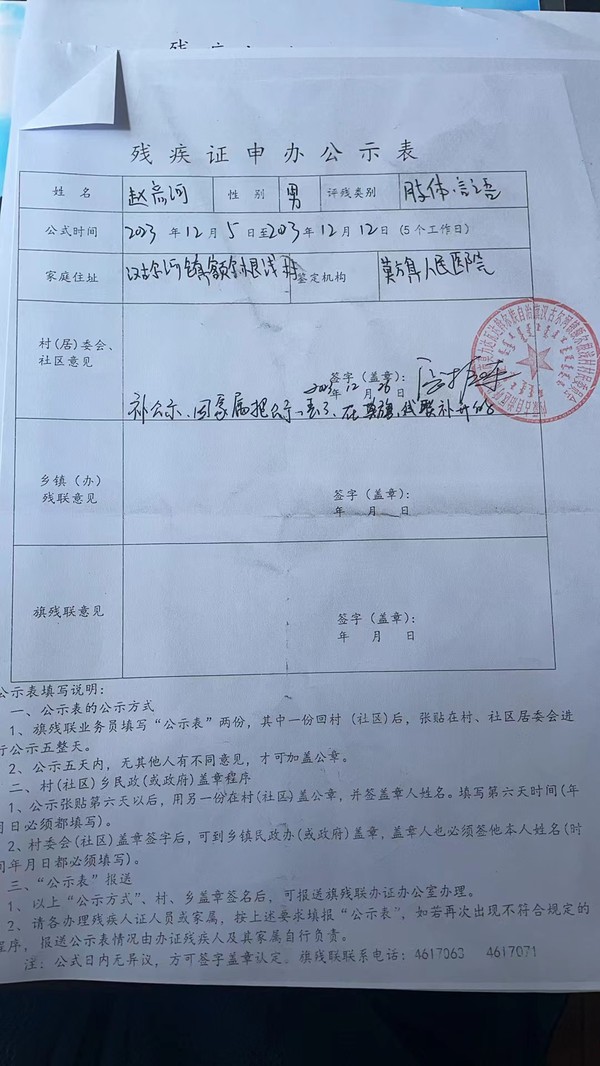 残疾证申办公示表
姓 名 赵 河 性 别 男 评残类别 肢体、言语
公式时间 2023 年 12 月 5 日至2023年 12 月 12日(5 个工作日)
家庭住址 汉古尔河镇额尔根浅村 鉴定机构 莫旗人民医院
村(居)委会、
社区意见
签字(盖章):
2023年 12 月 26 日
补公示、因家属把公示丢了、在莫旗残联补开的
乡镇(办)
残联意见
签字(盖章):
年 月 日
旗残联意见
签字(盖章):
年 月 日
公示表填写说明:
一、公示表的公示方式
1、旗残联业务员填写“公示表”两份,其中一份回村(社区)后,张贴在村、社区居委会进
行公示五整天。
2、公示五天内,无其他人有不同意见,才可加盖公章。
二、村(社区)乡民政(或政府)盖章程序
1、公示张贴第六天以后,用另一份在村(社区)盖公章,并签盖章人姓名。填写第六天时间(年
月日必须都填写)。
2、村委会(社区)盖章签字后,可到乡镇民政办(或政府)盖章,盖章人也必须签他本人姓名(时
间年月日都必须填写)。
三、“公示表”报送
1、以上“公示方式”、村、乡盖章签名后,可报送旗残联办证办公室办理。
2、请各办理残疾人证人员或家属,按上述要求填报“公示表”,如若再次出现不符合规定的
程序,报送公示表情况由办证残疾人及其家属自行负责。
注:公式日内无异议,方可签字盖章认定。旗残联联系电话:4617063 4617071